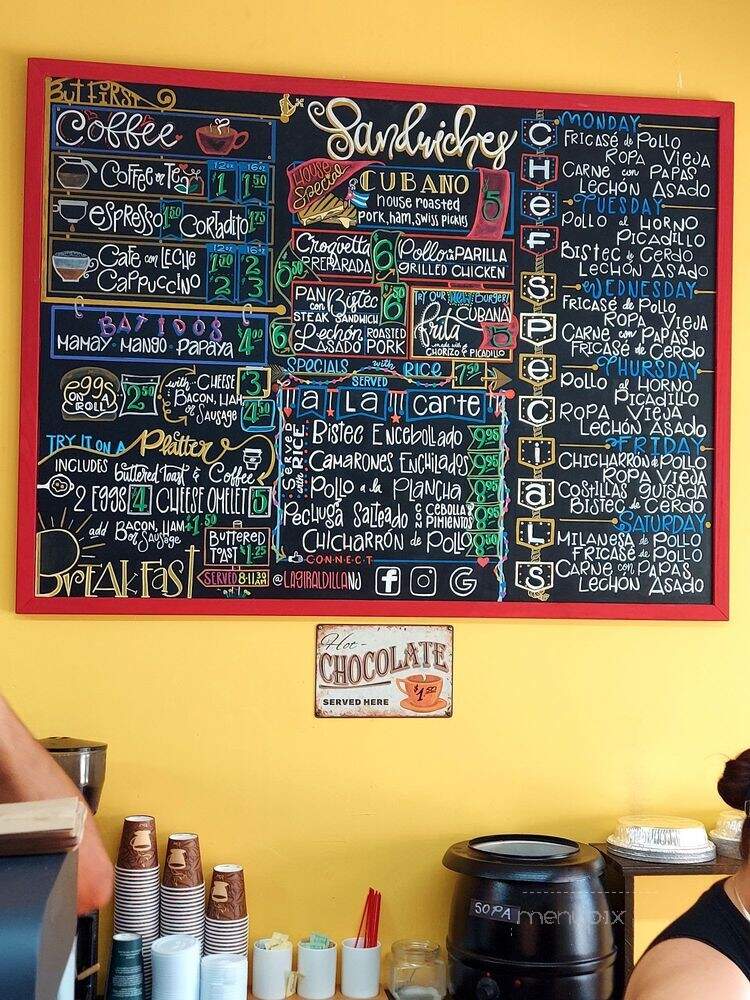 But First
Coffee
12oz 16oz
Coffee or Te $1 $1.50
Espresso 1.50 Cortadito 1.75
12oz 16oz
Cafe con Leche 1.00 2.00
Cappuccino 2 3
BATIDOS
MAMAY · MANGO · PAPAYA 4.00
Eggs on a Roll 2.50
with CHEESE 3
BACON, HAM
or SAUSAGE 4.50
TRY IT ON A Platter
INCLUDES Buttered Toast & Coffee
2 EGGS 4 CHEESE OMELET 5
add BACON, HAM
or SAUSAGE +1.50
Buttered
TOAST $1.25
BREAKFAST
SERVED 8-11:30 AM
Sandwiches
House
Special
CUBANO
House roasted
Pork, ham, swiss pickles
5
Croqueta
PREPARADA
5.50
Pollo a la PARILLA
GRILLED CHICKEN
6
PAN con Bistec
STEAK SANDWICH
6.50
Lechon
ASADO
ROASTED
PORK
6
TRY OUR New BURGER!
CUBANA
frita
made with
CHORIZO & PICADILLO
5
SPECIALS with RICE 7.50
SERVED
a La Carte
Served with RICE
Bistec Encebollado 9.95
Camarones Enchilados 9.95
Pollo a la Plancha 8.95
Pechuga Salteado con CEBOLLA & PIMIENTOS 8.95
Chicharron de Pollo 8.50
CONNECT
@LAGIRALDILLANJ f G
CHEF SPECiALS
MONDAY
Fricasé de Pollo
Ropa Vieja
Carne con Papas
Lechón Asado
TUESDAY
Pollo al Horno
Picadillo
Bistec de Cerdo
Lechón Asado
WEDNESDAY
Fricasé de Pollo
Ropa Vieja
Carne con Papas
Fricasé de Cerdo
THURSDAY
Pollo al Horno
Picadillo
Ropa Vieja
Lechón Asado
FRIDAY
Chicharrón de Pollo
Ropa Vieja
Costillas Guisada
Bistec de Cerdo
SATURDAY
Milanesa de Pollo
Fricasé de Pollo
Carne con Papas
Lechón Asado
Hot
CHOCOLATE
$1.50
SERVED HERE
SOPA
menupix